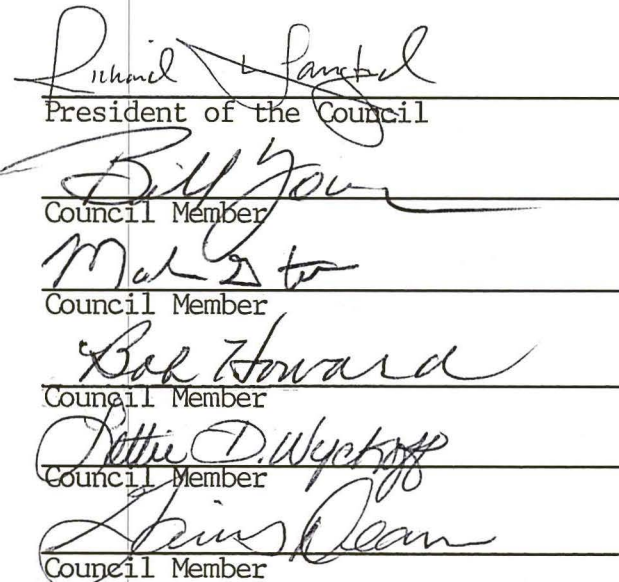 Richard
President of the Council
Bill
Council Member
Council Member
Bob Howard
Council Member
Lottie D. Wyckoff
Council Member
Dean
Council Member